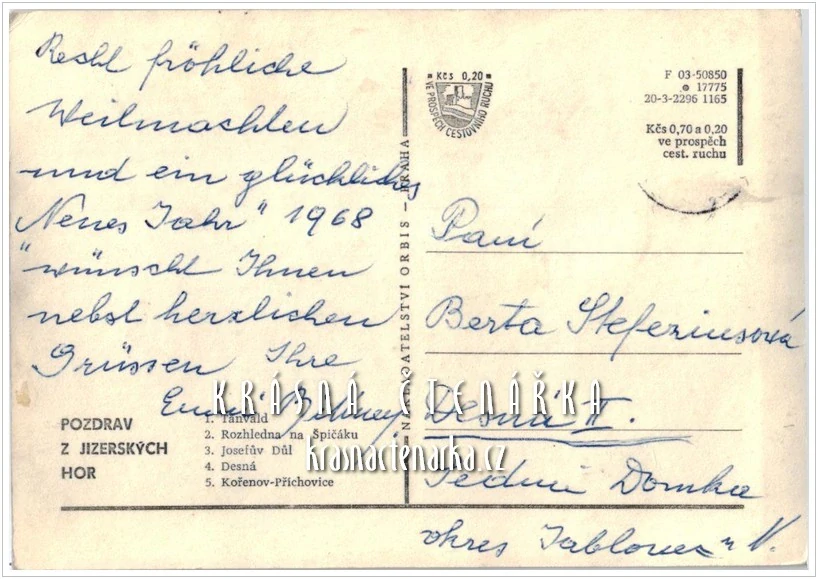 Recht fröhliche
Weihnachten
und ein glückliches
„Neues Jahr" 1968
wünscht Ihnen
nebst herzlichen
Grüssen Ihre
POZDRAV
Z JIZERSKÝCH
HOR
1. Tanvald
2. Rozhledna na Špičáku
3. Josefův Důl
4. Desná
5. Kořenov-Příchovice
NAKLADATELSTVÍ ORBIS — PRAHA
Kčs 0,20
VE PROSPĚCH CESTOVNÍHO RUCHU
F 03-50850
17775
20-3-2296 1165
Kčs 0,70 a 0,20
ve prospěch
cest. ruchu
Paní
Berta Stefeziusová
Desná II.
Domka
okres Jablonec n N.
KRÁSNÁ ČTENÁŘKA
krasnactenarka.cz